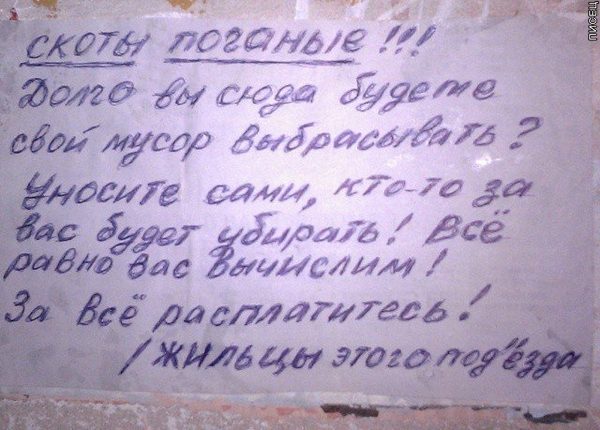 скоты поганые!!!
Долго вы сюда будете
свой мусор выбрасывать?
Уносите сами, кто-то за
вас будет убирать! Всё
равно вас вычислим!
За всё расплатитесь!
/жильцы этого под'ёзда
ПИСЕЦ